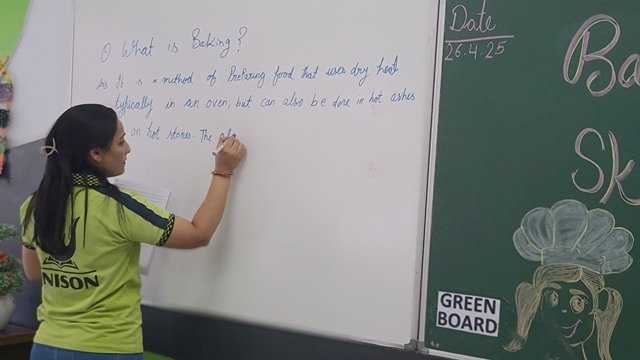 Q. What is Baking?
Ans It is a method of Preparing food that uses dry heat
typically in an oven, but can also be done in hot ashes
on hot stones. The
Date
26.4.25
Ba
Sk
GREEN
BOARD
NISON